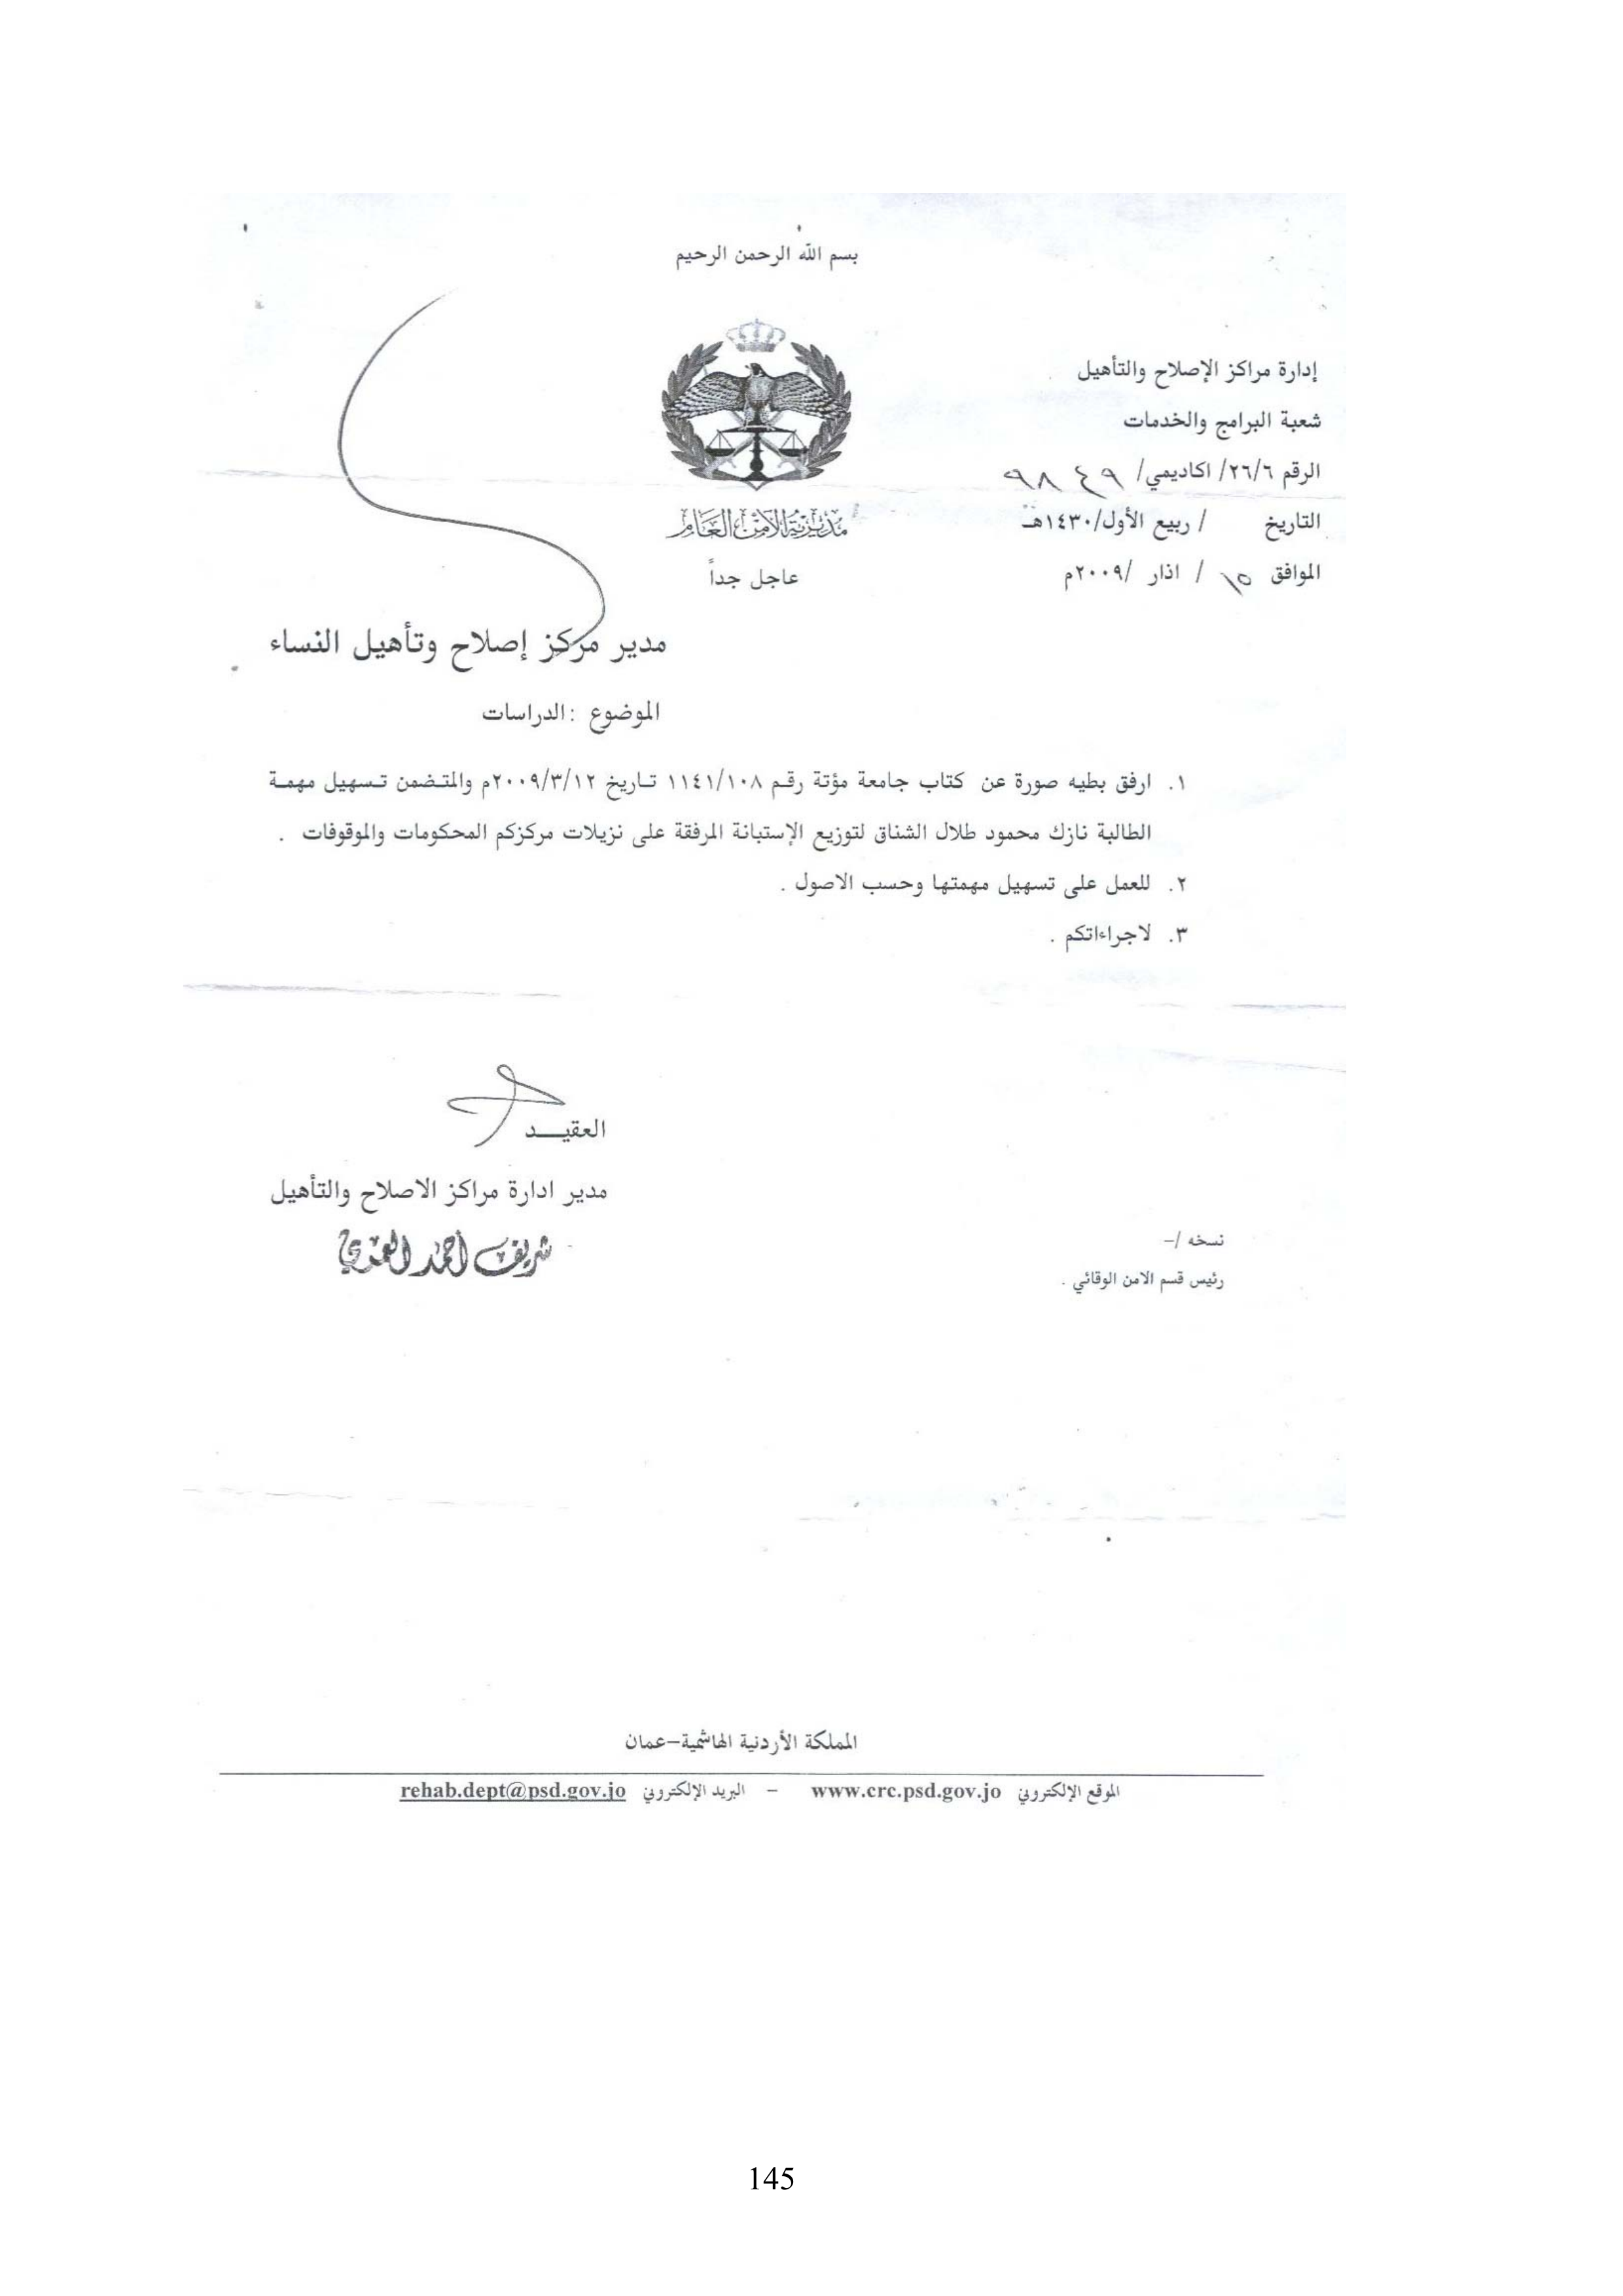 بسم الله الرحمن الرحيم
إدارة مراكز الإصلاح والتأهيل
شعبة البرامج والخدمات
الرقم ٢٦/٦/ اكاديمي/ ٩٨٤٩
التاريخ / ربيع الأول/١٤٣٠هـ
الموافق ١٥ / اذار /٢٠٠٩م
مديرية الامن العام
عاجل جداً
مدير مركز إصلاح وتأهيل النساء
الموضوع : الدراسات
١. ارفق بطيه صورة عن كتاب جامعة مؤتة رقم ١١٤١/١٠٨ تاريخ ٢٠٠٩/٣/١٢م والمتضمن تسهيل مهمة
الطالبة نازك محمود طلال الشناق لتوزيع الإستبانة المرفقة على نزيلات مركزكم المحكومات والموقوفات .
٢. للعمل على تسهيل مهمتها وحسب الاصول .
٣. لاجراءاتكم .
العقيـــد
مدير ادارة مراكز الاصلاح والتأهيل
شريف أحمد العمري
نسخه /-
رئيس قسم الامن الوقائي .
المملكة الأردنية الهاشمية-عمان
الموقع الإلكتروني www.crc.psd.gov.jo – البريد الإلكتروني rehab.dept@psd.gov.jo
145